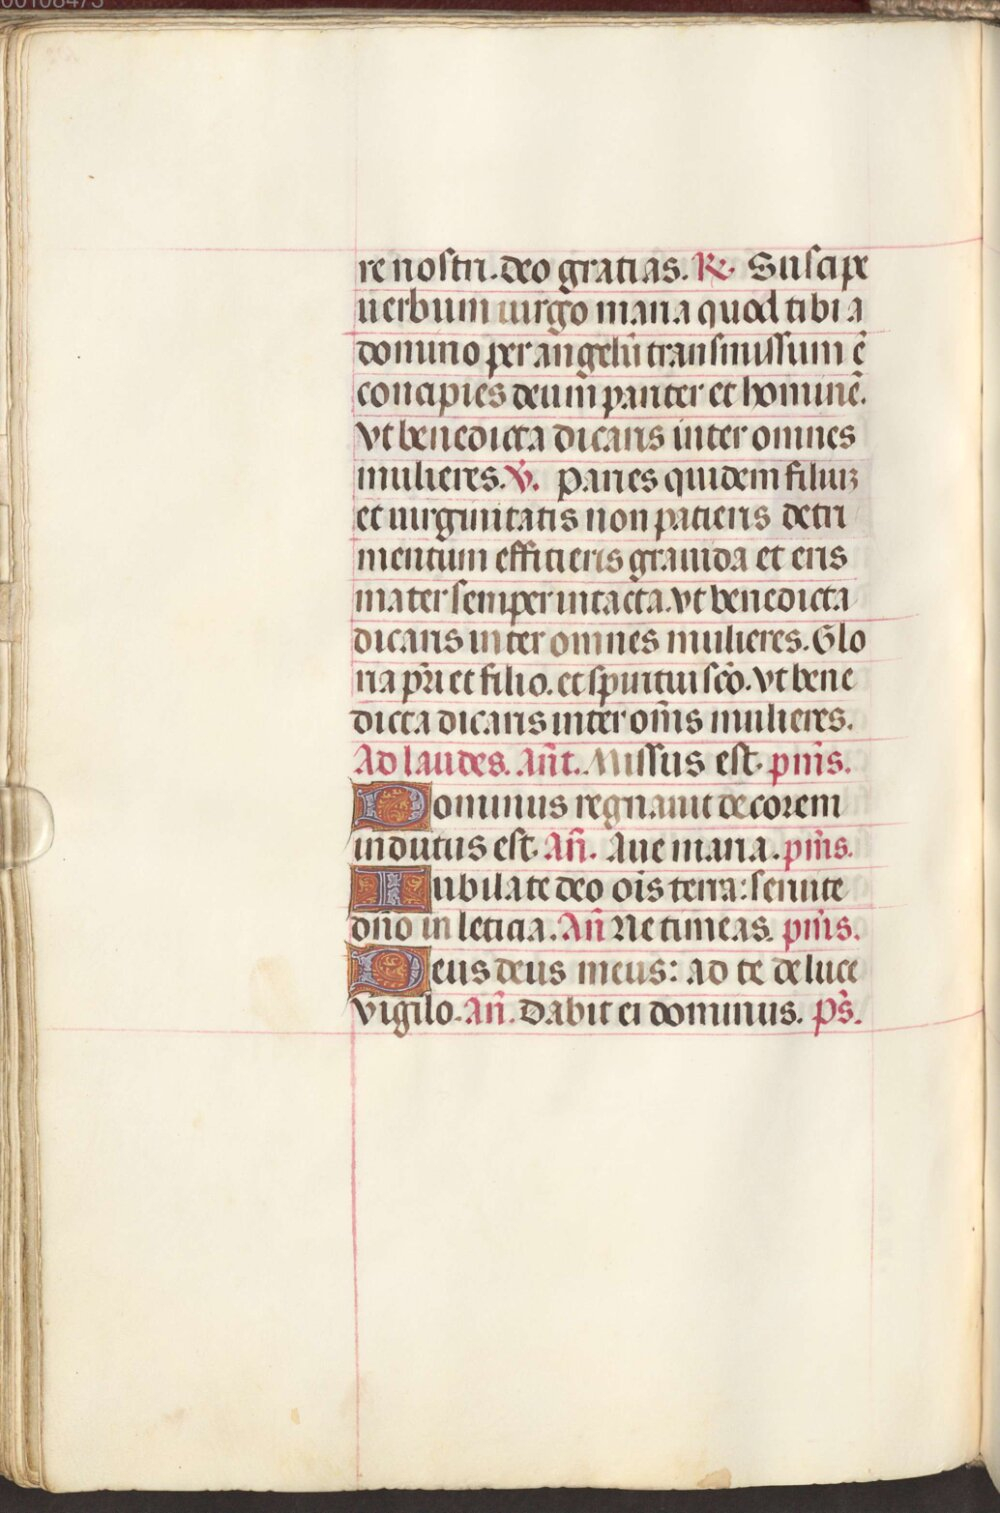 re nostri. deo gratias. R. Suscipe
uerbum uirgo maria quod tibi a
domino per angelũ transmissum ẽ
concipies deum pariter et hominẽ.
vt benedicta dicaris inter omnes
mulieres. V. Paries quidem filiuʒ
et uirginitatis non patieris detri
mentum efficieris grauida et eris
mater semper intacta. vt benedicta
dicaris inter omnes mulieres. Glo
ria pr̃i et filio. et spiritui scõ. vt bene
dicta dicaris inter om̃s mulieres.
Ad laudes. Añt. Missus est. psm̃s.
Dominus regnauit decorem
indutus est. Añ. Aue maria. psm̃s.
Iubilate deo oĩs terra: seruite
dño in leticia. Añ Ne timeas. psm̃s.
Deus deus meus: ad te de luce
vigilo. Añ. Dabit ei dominus. Ps̃.